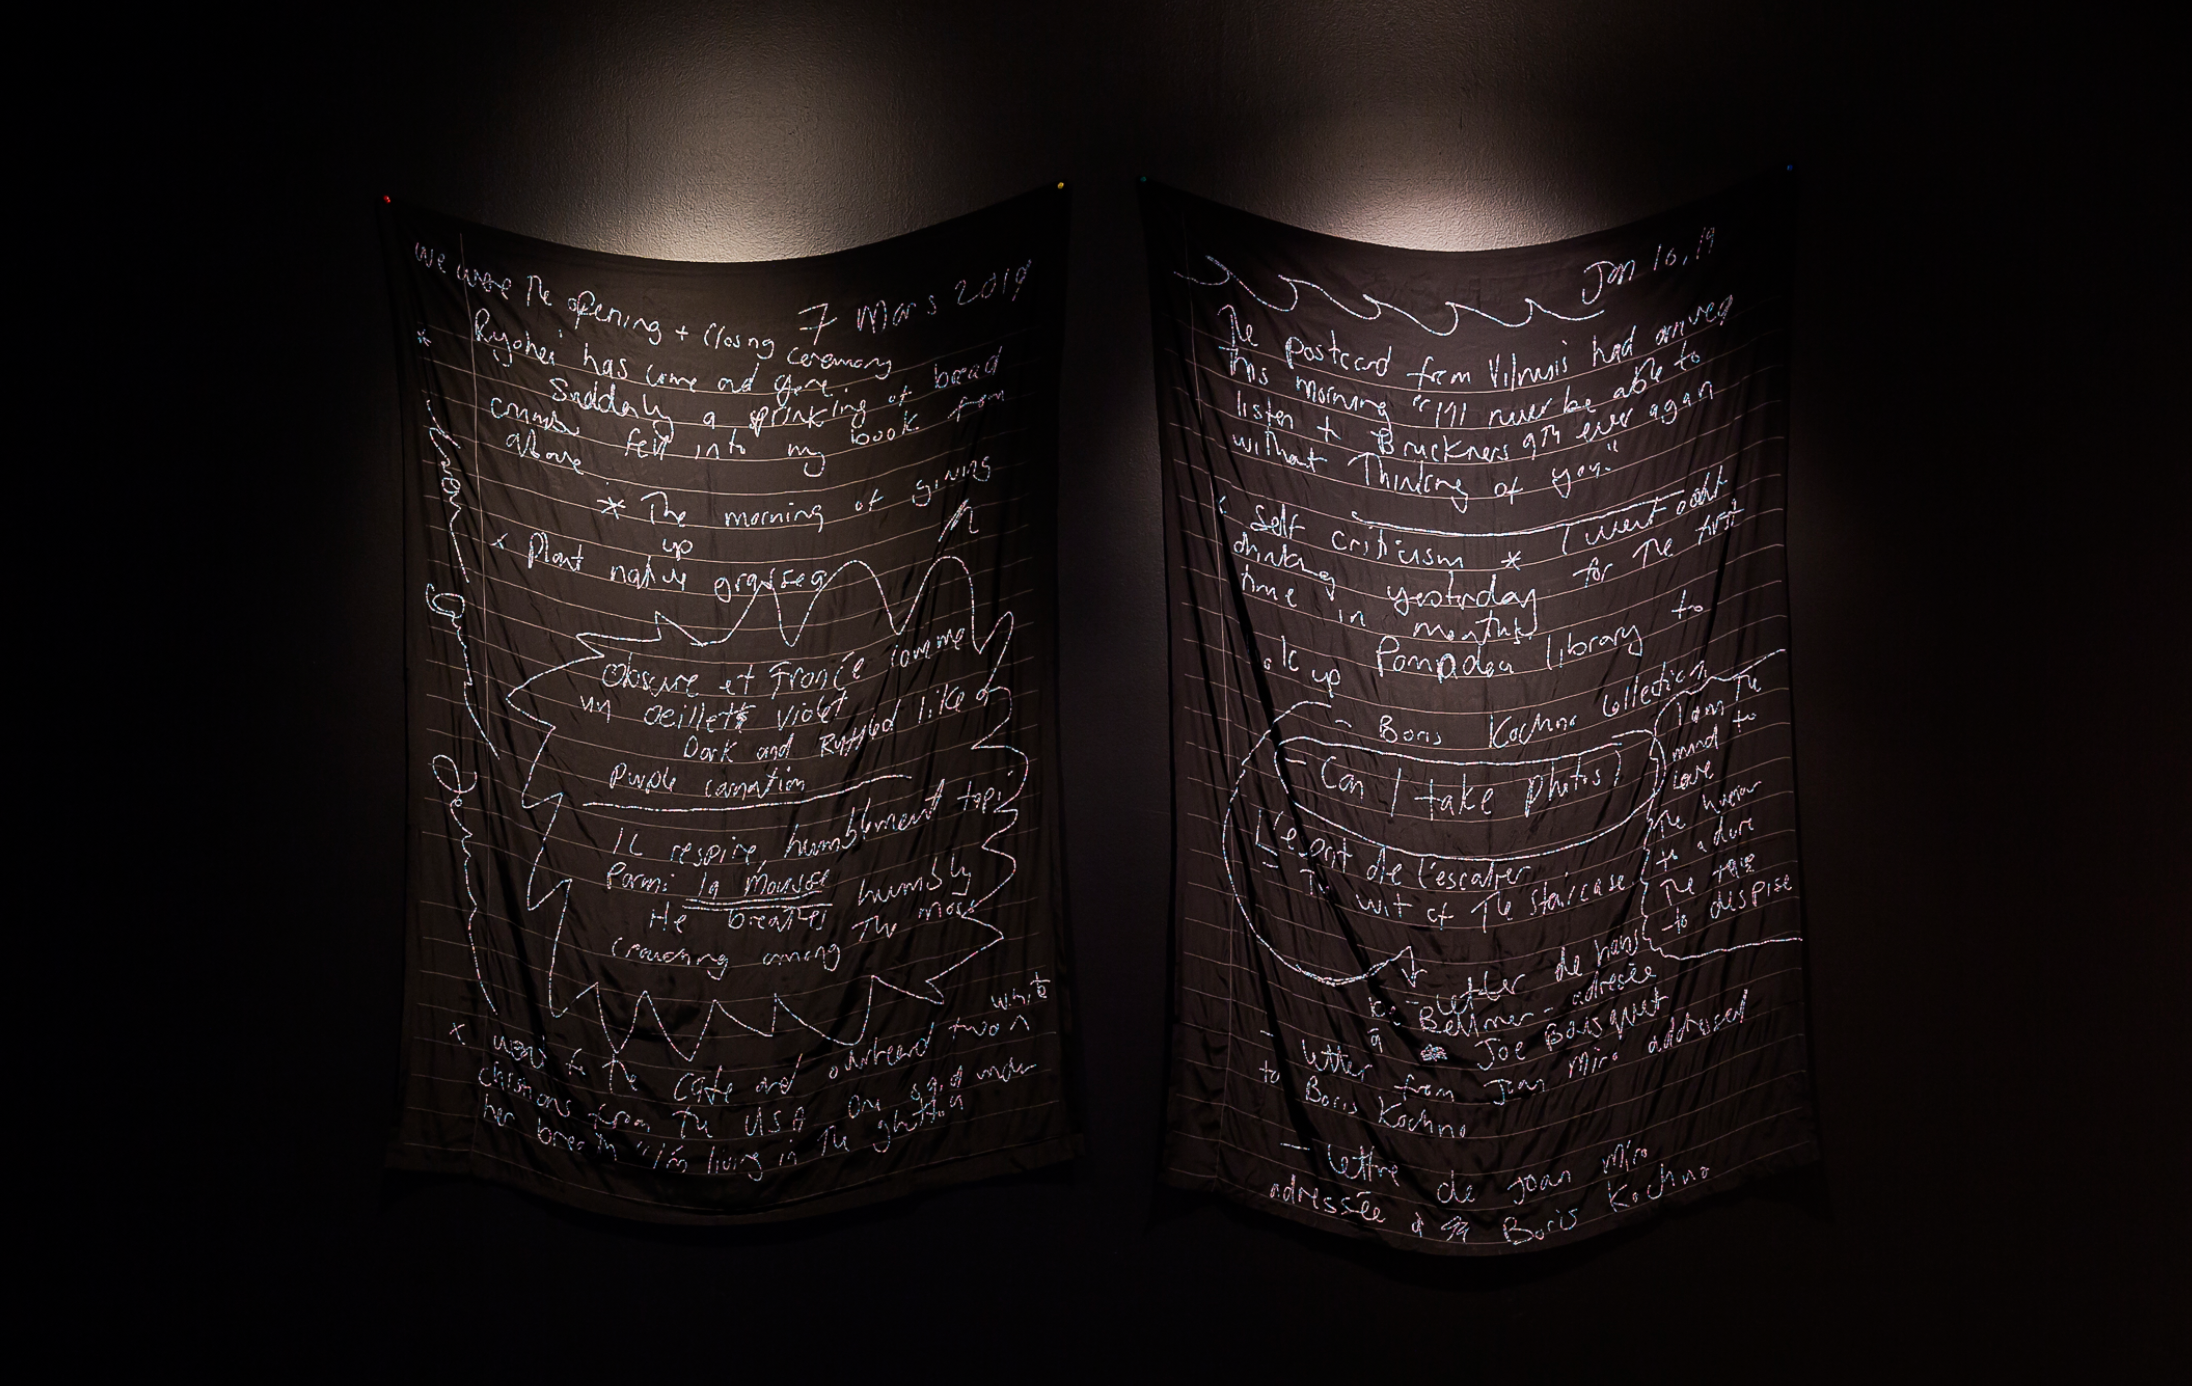 7 Mars 2019
we were The opening + Closing ceremony
* Ryohei has come and gone.
Suddenly a sprinkling of bread
crumbs fell into my book from
above
* The morning of giving
up
x Plant native grasses
Obscure et Froncé comme
un oeillet violet
Dark and Ruffled like a
Purple carnation
IL respire, humblement tapi
Parmi la mousse
He breathes humbly
crouching among The moss
white
x went to the Cafe and overheard two ^
christians from The USA One said under
her breath "I'm living in The ghetto"
Jan 16, 19
The postcard from Vilnuis had arrived
This morning "I'll never be able to
listen to Bruckners 9Th ever again
without Thinking of you."
Self criticism * I went out
drinking yesterday for The first
time in months
Pompadou library to
up
- Boris Kochno Collection
- Can I take photos?
L'esprit de l'escalier
- The wit of The staircase
I am The
mind to
love
The humor
to adore
The
to dispise
Letter de hans
Bellmer - adresée
à Joe Bousquet
- letter from Joan Miro addressed
to Boris Kochno
- lettre de Joan Miro
adressée à Boris Kochno